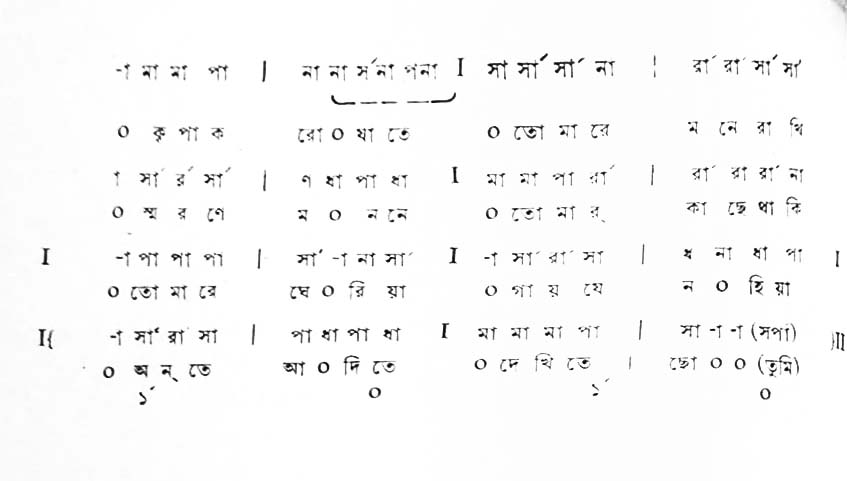 -া মা মা পা | না না র্সনা পনা I সা র্সা র্সা না | র্রা র্রা র্সা র্সা
০ কৃ পা ক রো ০ যা তে ০ তো মা রে ম নে রা খি
া র্সা র্র র্সা | ণ ধা পা ধা I মা মা পা র্রা | র্রা রা র্রা না
০ স্ম র ণে ম ০ ন নে ০ তো মা র্ কা ছে থা কি
I -া পা পা পা | র্সা -া না র্সা I -া র্সা র্রা র্সা | ধ না ধা পা I
০ তো মা রে ঘে ০ রি য়া ০ গা য় যে ন ০ হি য়া
I{ -া র্সা রা সা | পা ধা পা ধা I মা মা মা পা | সা -া -া (সপা) }II
০ অ ন্ তে আ ০ দি তে ০ দে খি তে | ছো ০ ০ (তুমি)
১´ ০ ১´ ০